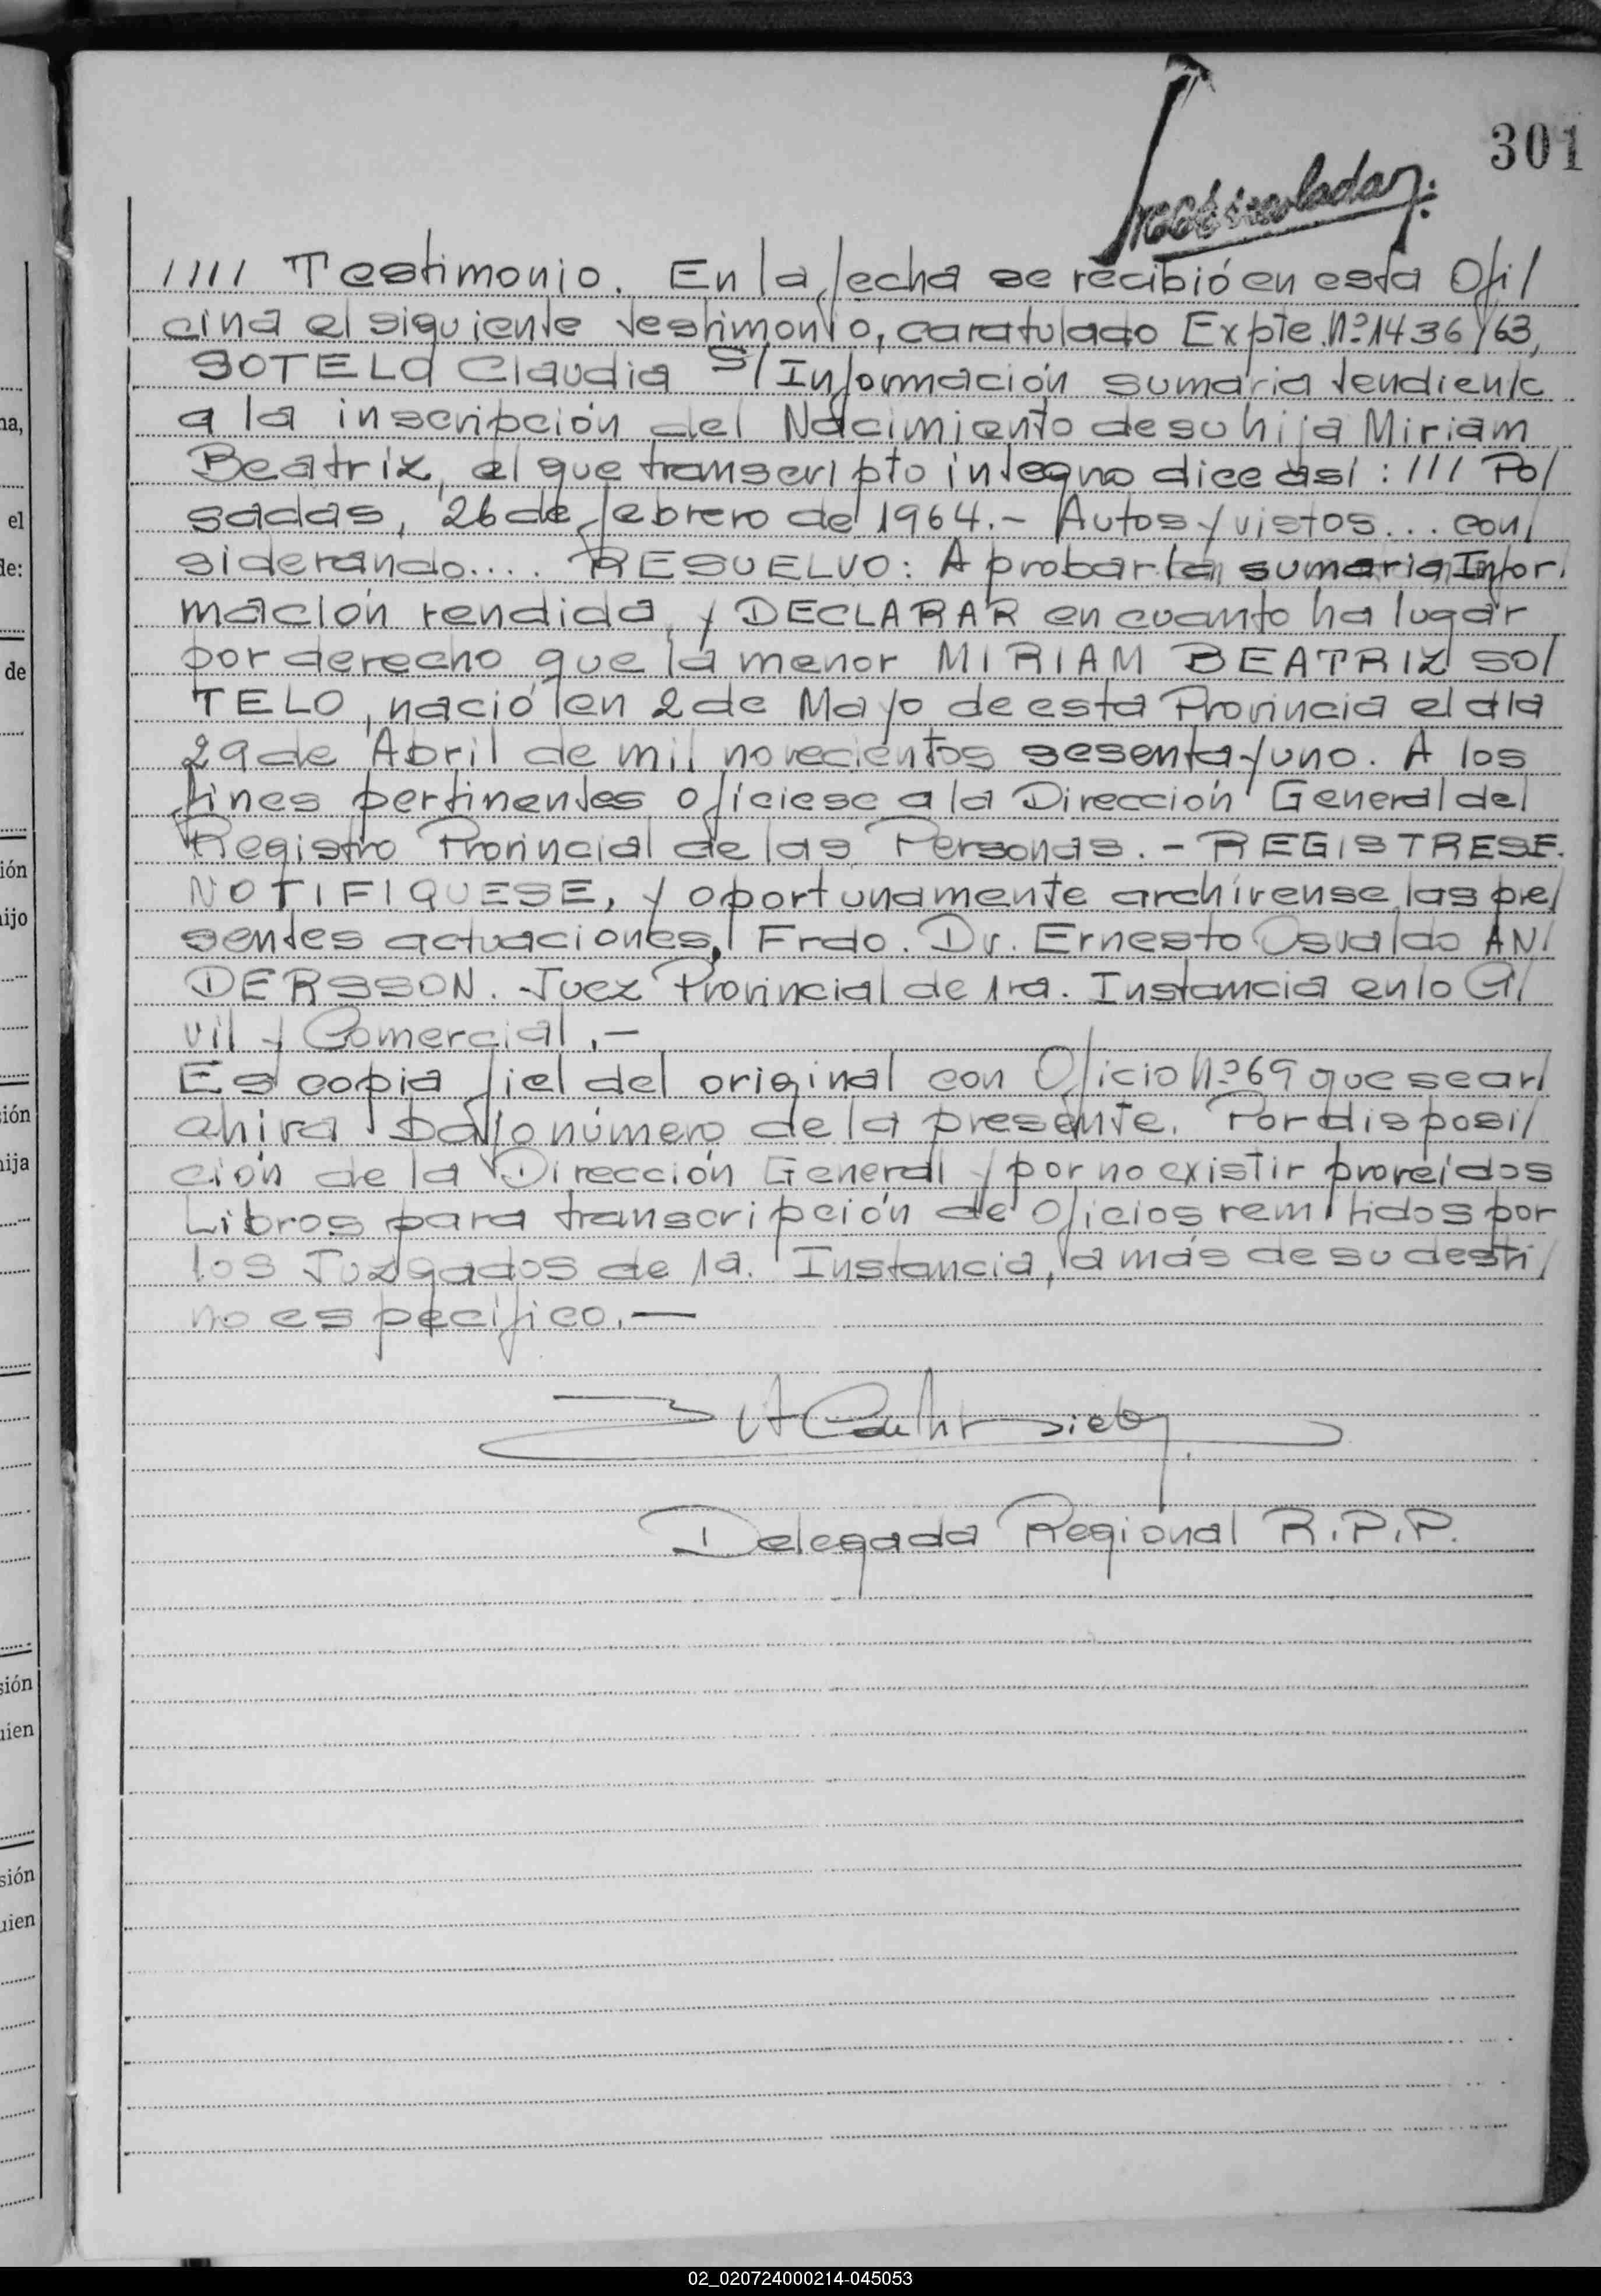 301
//// Testimonio. En la fecha se recibió en esta Ofi/
cina el siguiente testimonio, caratulado Expte. Nº 1436/63,
SOTELO Claudia S/ Información sumaria tendiente
a la inscripción del Nacimiento de su hija Miriam
Beatriz, el que transcripto integro dice así: /// Po/
sadas, 26 de febrero de 1964.- Autos y vistos... con/
siderando.... RESUELVO: Aprobar la sumaria Infor/
mación rendida y DECLARAR en cuanto ha lugar
por derecho que la menor MIRIAM BEATRIZ SO/
TELO, nació en 2 de Mayo de esta Provincia el día
29 de Abril de mil novecientos sesenta y uno. A los
fines pertinentes ofíciese a la Dirección General del
Registro Provincial de las Personas.- REGISTRESE.
NOTIFIQUESE, y oportunamente archívense las pre/
sentes actuaciones. Frdo. Dr. Ernesto Osvaldo AN/
DERSSON. Juez Provincial de 1ra. Instancia en lo Ci/
vil y Comercial.-
Es copia fiel del original con Oficio Nº 69 que se ar/
chiva bajo número de la presente. Por disposi/
ción de la Dirección General y por no existir proveídos
Libros para transcripción de Oficios remitidos por
los Juzgados de 1a. Instancia, a más de su desti/
no específico.-
Delegada Regional R.P.P.
ha,
el
de:
de
ión
hijo
sión
hija
sión
uien
sión
uien
02_020724000214-045053